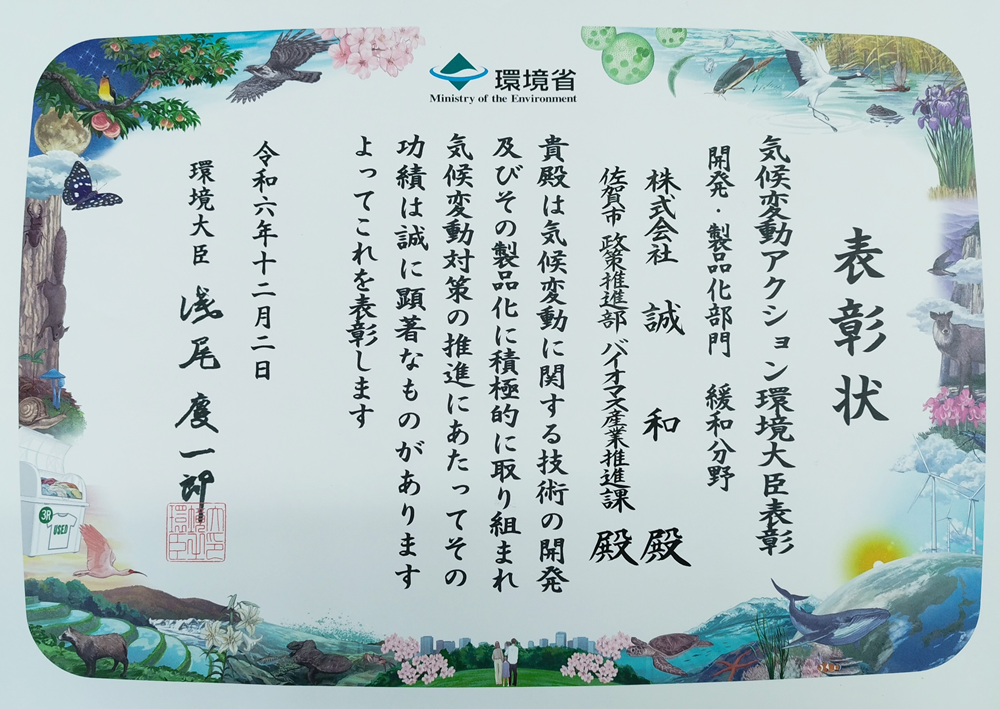 環境省
Ministry of the Environment
表彰状
気候変動アクション環境大臣表彰
開発・製品化部門 緩和分野
株式会社 誠和 殿
佐賀市 政策推進部 バイオマス産業推進課 殿
貴殿は気候変動に関する技術の開発
及びその製品化に積極的に取り組まれ
気候変動対策の推進にあたってその
功績は誠に顕著なものがあります
よってこれを表彰します
令和六年十二月二日
環境大臣 浅尾慶一郎
3R
USED